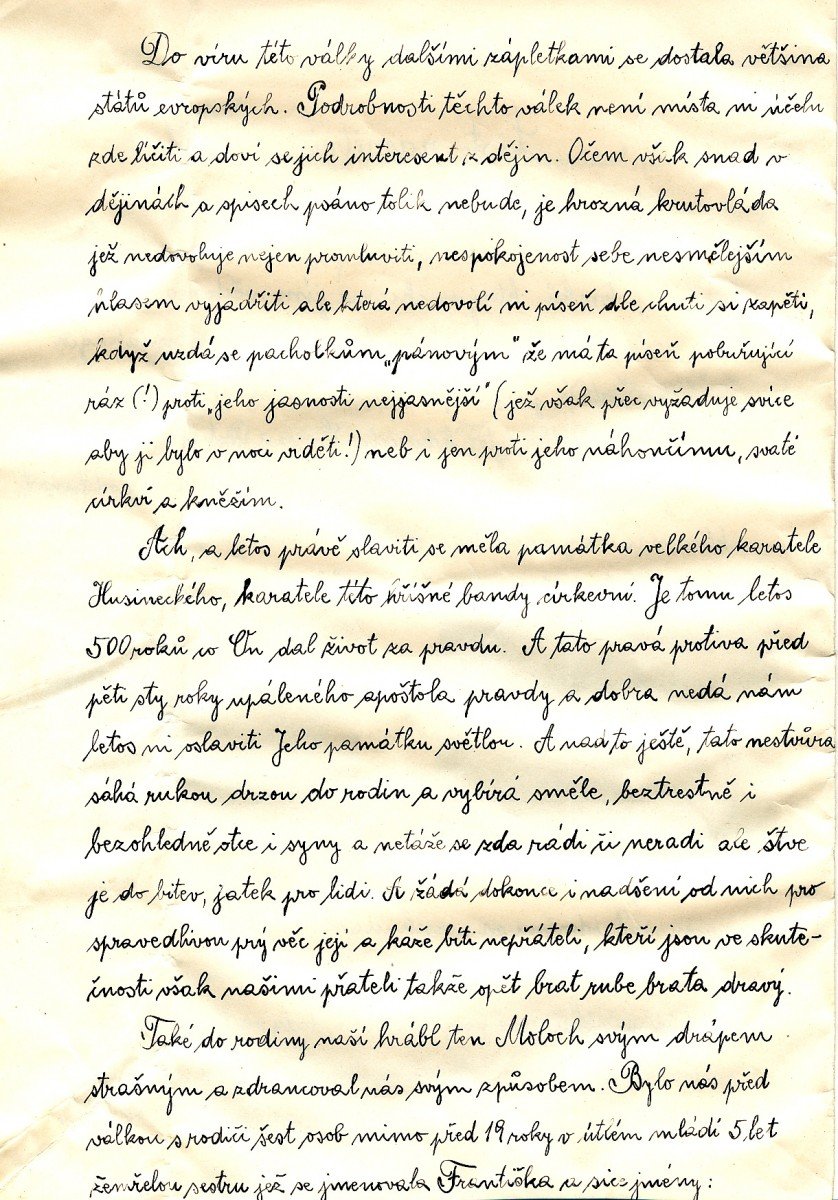 Do víru této války dalšími zápletkami se dostala většina
států evropských. Podrobnosti těchto válek není místa ni účelu
zde líčiti a doví se jich interesent z dějin. Očem však snad v
dějinách a spisech psáno tolik nebude, je hrozná krutovláda
jež nedovoluje nejen promluviti, nespokojenost sebe nesmělejším
hlasem vyjádřiti ale která nedovolí ni píseň dle chuti si zapěti,
když uzdá se pacholkům „pánovým" že má ta píseň pobuřující
ráz (!) proti „jeho jasnosti nejjasnější" (jež však přec vyžaduje svíce
aby ji bylo v noci viděti!) neb i jen proti jeho náhončímu, svaté
církví a kněžím.
Ach, a letos právě slaviti se měla památka velkého karatele
Husineckého, karatele této hříšné bandy církevní. Je tomu letos
500 roků co On dal život za pravdu. A tato pravá protiva před
pěti sty roky upáleného apoštola pravdy a dobra nedá nám
letos ni oslaviti Jeho památku světlou. A nad to ještě, tato nestvůra
sáhá rukou drzou do rodin a vybírá směle, beztrestně i
bezohledně otce i syny a netáže se zda rádi či neradi ale štve
je do bitev, jatek pro lidi. A žádá dokonce i nadšení od nich pro
spravedlivou prý věc její a káže bíti nepřáteli, kteří jsou ve skute-
čnosti však našimi přateli takže opět brat rube brata dravý.
Také do rodiny naší hrábl ten Moloch svým drápem
strašným a zdrancoval nás svým způsobem. Bylo nás před
válkou s rodiči šest osob mimo před 19 roky v útlém mládí 5 let
zemřelou sestru jež se jmenovala Františka a sice jmény: